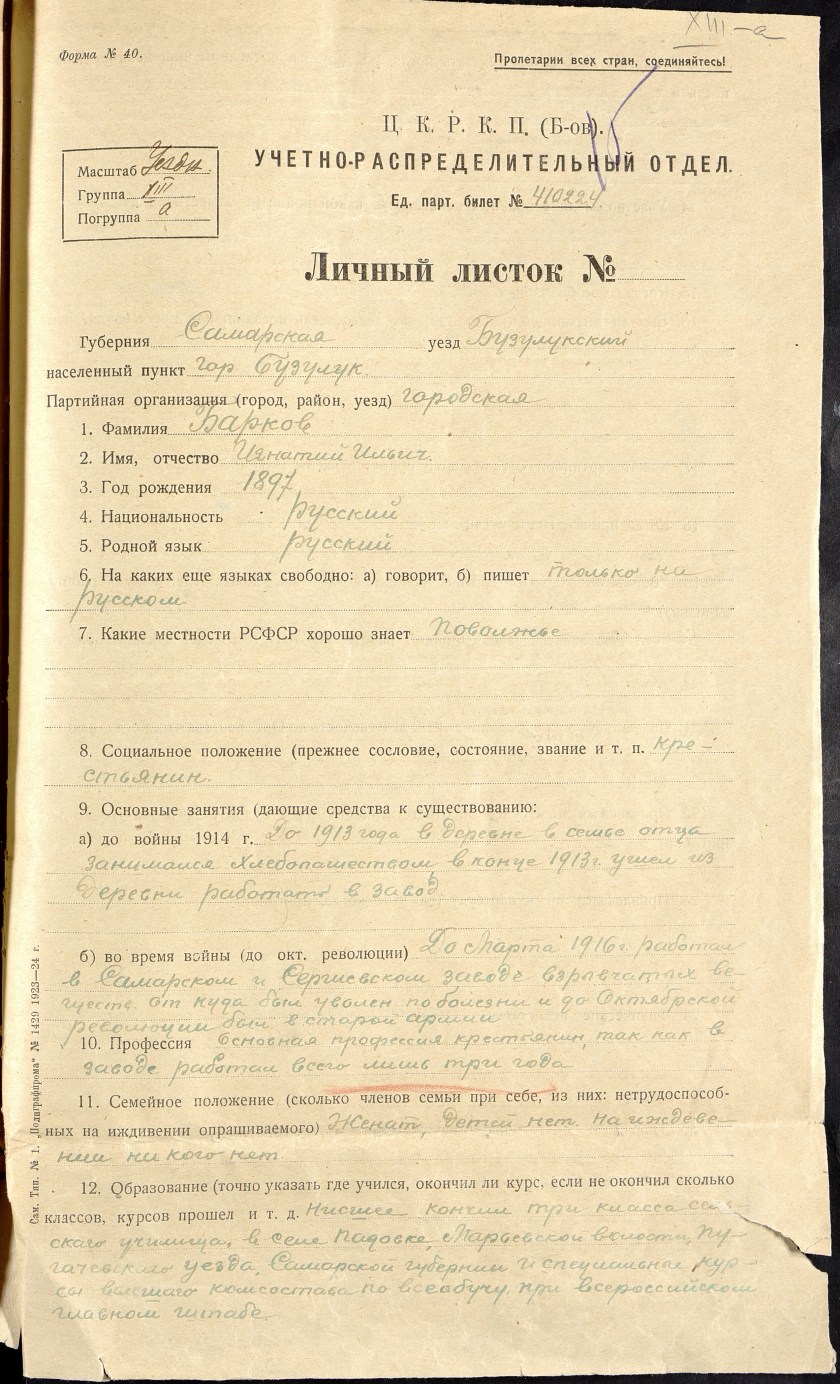 XIII-а
Форма № 40.
Пролетарии всех стран, соединяйтесь!
Ц. К. Р. К. П. (Б-ов).
УЧЕТНО-РАСПРЕДЕЛИТЕЛЬНЫЙ ОТДЕЛ.
Масштаб Уездн.
Группа XIII
Погруппа а
Ед. парт. билет № 410224.
Личный листок №
Губерния Самарская уезд Бузулукский
населенный пункт гор Бузулук.
Партийная организация (город, район, уезд) городская
1. Фамилия Барков
2. Имя, отчество Игнатий Ильич.
3. Год рождения 1897
4. Национальность русский
5. Родной язык русский
6. На каких еще языках свободно: а) говорит, б) пишет только на
русском
7. Какие местности РСФСР хорошо знает Поволжье
8. Социальное положение (прежнее сословие, состояние, звание и т. п. кре-
стьянин.
9. Основные занятия (дающие средства к существованию:
а) до войны 1914 г. До 1913 года в деревне в семье отца
занимался хлебопашеством в конце 1913 г. ушел из
деревни работать в завод.
б) во время войны (до окт. революции) До Марта 1916 г. работал
в Самарском и Сергиевском заводе взрывчатых ве-
ществ. от куда был уволен по болезни и до Октябрской
революции был в старой армии
10. Профессия Основная профессия крестьянин, так как в
заводе работал всего лишь три года
11. Семейное положение (сколько членов семьи при себе, из них: нетрудоспособ-
ных на иждивении опрашиваемого) Женат, детей нет. на иждеве-
нии ни кого нет.
12. Образование (точно указать где учился, окончил ли курс, если не окончил сколько
классов, курсов прошел и т. д. Нисшее кончил три класса
скаго училища, в селе Падовке, Марьевской волости, Пу-
гачевскаго уезда, Самарской губернии и специальные кур-
сы высшаго комсостава по всеобучу, при всероссийском
главном штабе.
Сам. Тип. № 1. „Полиграфпрома" № 1429 1923—24 г.